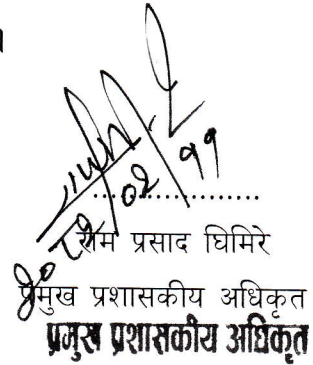 ०२ ११
..................
राम प्रसाद घिमिरे
प्रमुख प्रशासकीय अधिकृत
प्रमुख प्रशासकीय अधिकृत